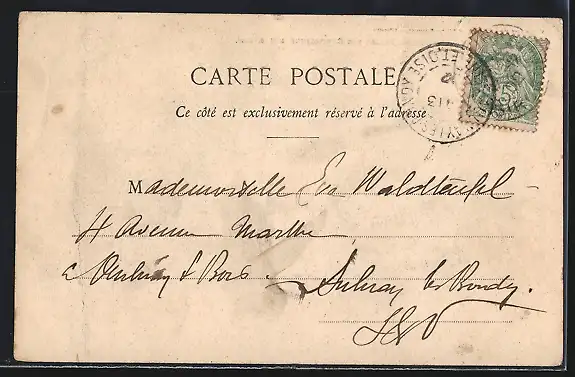 CARTE POSTALE
Ce côté est exclusivement réservé à l'adresse
Mademoiselle Eva Waldteufel
4 Avenue Marthe
à Aulnay s Bois.
Aulnay les Bondy.
S&O